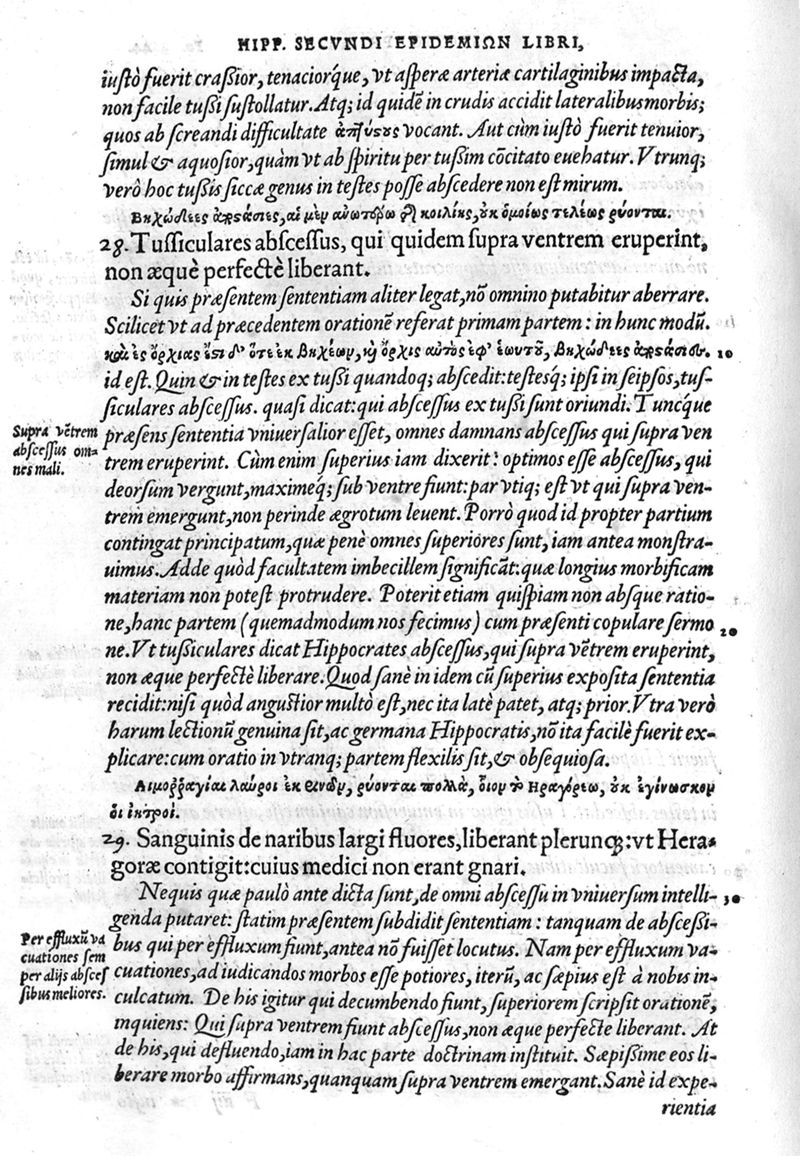 HIPP. SECVNDI EPIDEMIΩN LIBRI,
iustò fuerit crassior, tenaciorq́ue, vt asperæ arteriæ cartilaginibus impacta,
non facile tussi sustollatur. Atq; id quidẽ in crudis accidit lateralibus morbis;
quos ab screandi difficultate ἀπτύστους vocant. Aut cùm iustò fuerit tenuior,
simul & aquosior, quàm vt ab spiritu per tussim cõcitato euehatur. Vtrunq;
verò hoc tussis siccæ genus in testes posse abscedere non est mirum.
Βηχώδεες ἀποστάσιες, αἱ μὲν ἀνωτέρω τῆς κοιλίης, οὐκ ὁμοίως τελέως ῥύονται.
28. Tussiculares abscessus, qui quidem supra ventrem eruperint,
non æquè perfectè liberant.
Si quis præsentem sententiam aliter legat, nõ omnino putabitur aberrare.
Scilicet vt ad præcedentem orationẽ referat primam partem: in hunc modũ.
καὶ ἐς ὄρχιας ἔστι δ' ὅτε ἐκ βηχέων, καὶ ὄρχις αὐτὸς ἐφ' ἑωυτοῦ, βηχώδεες ἀποστάσιες. 10
id est. Quin & in testes ex tussi quandoq; abscedit: testesq́; ipsi in seipsos, tus-
siculares abscessus. quasi dicat: qui abscessus ex tussi sunt oriundi. Tuncq́ue
Supra vẽtrem abscessus omnes mali.
præsens sententia vniuersalior esset, omnes damnans abscessus qui supra ven
trem eruperint. Cùm enim superius iam dixerit: optimos esse abscessus, qui
deorsum vergunt, maximeq́; sub ventre fiunt: par vtiq; est vt qui supra ven-
trem emergunt, non perinde ægrotum leuent. Porrò quod id propter partium
contingat principatum, quæ penè omnes superiores sunt, iam antea monstra-
uimus. Adde quòd facultatem imbecillem significãt: quæ longius morbificam
materiam non potest protrudere. Poterit etiam quispiam non absque ratio-
ne, hanc partem (quemadmodum nos fecimus) cum præsenti copulare sermo 20
ne. Vt tussiculares dicat Hippocrates abscessus, qui supra vẽtrem eruperint,
non æque perfectè liberare. Quod sanè in idem cũ superius exposita sententia
recidit: nisi quòd angustior multò est, nec ita latè patet, atq; prior. Vtra verò
harum lectionũ genuina sit, ac germana Hippocratis, nõ ita facilè fuerit ex-
plicare: cum oratio in vtranq; partem flexilis sit, & obsequiosa.
Αἱμοῤῥαγίαι λαῦροι ἐκ ῥινῶν, ῥύονται πολλὰ, οἷον τὸ Ηραγόρεω, οὐκ ἐγίνωσκον
οἱ ἰητροί.
29. Sanguinis de naribus largi fluores, liberant plerunq;: vt Hera-
goræ contigit: cuius medici non erant gnari.
Nequis quæ paulò ante dicta sunt, de omni abscessu in vniuersum intelli- 30
genda putaret: statim præsentem subdidit sententiam: tanquam de abscessi-
Per effluxũ va cuationes sem per alijs absces sibus meliores.
bus qui per effluxum fiunt, antea nõ fuisset locutus. Nam per effluxum va-
cuationes, ad iudicandos morbos esse potiores, iterũ, ac sæpius est à nobis in-
culcatum. De his igitur qui decumbendo fiunt, superiorem scripsit orationẽ,
inquiens: Qui supra ventrem fiunt abscessus, non æque perfecte liberant. At
de his, qui defluendo, iam in hac parte doctrinam instituit. Sæpissime eos li-
berare morbo affirmans, quanquam supra ventrem emergant. Sanè id expe-
rientia